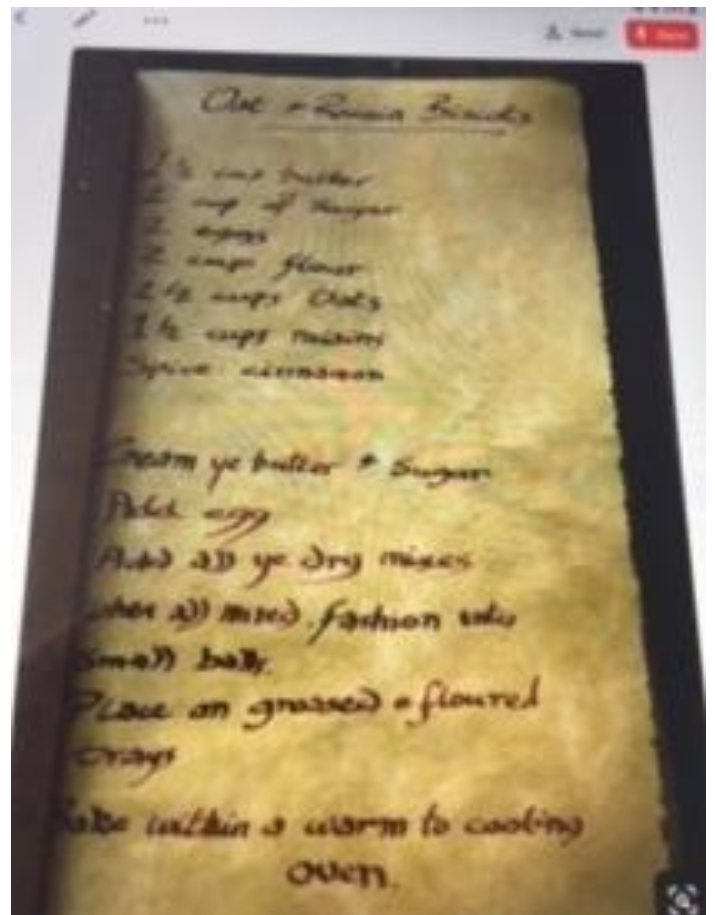 Oat + Raisin Biscuits
½ cup butter
cup of sugar
eggs
2 cups flour
2 ½ cups Oats
1 ½ cups raisins
Spice cinnamon
Cream ye butter + Sugar
Add egg
Add all ye dry mixes
when all mixed, fashion into
small balls.
Place on greased + floured
trays
Bake within a warm to cooling
oven.